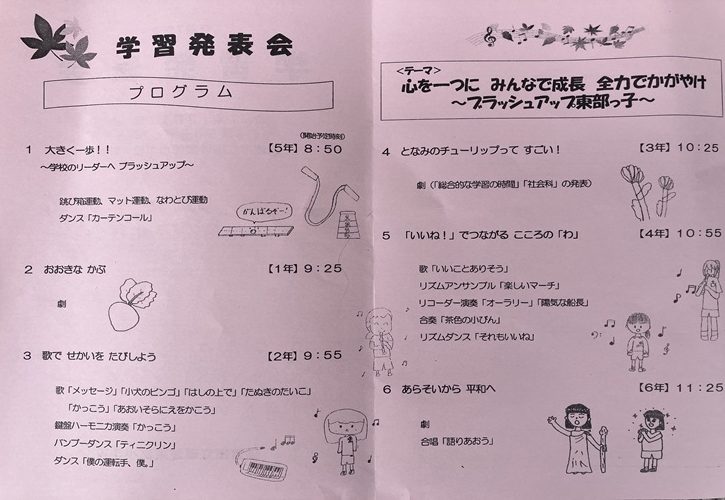 学習発表会
プログラム
(開始予定時刻)
1 大きく一歩！！ 【5年】 8:50
～学校のリーダーへ ブラッシュアップ～
跳び箱運動、マット運動、なわとび運動
ダンス「カーテンコール」
がんばるぞー！
2 おおきな かぶ 【1年】 9:25
劇
3 歌で せかいを たびしよう 【2年】 9:55
歌「メッセージ」「小犬のビンゴ」「はしの上で」「たぬきのたいこ」
「かっこう」「あおいそらにえをかこう」
鍵盤ハーモニカ演奏「かっこう」
バンブーダンス「ティニクリン」
ダンス「僕の運転手、僕。」
＜テーマ＞
心を一つに みんなで成長 全力でかがやけ
～ブラッシュアップ東部っ子～
4 となみのチューリップって すごい！ 【3年】 10:25
劇（「総合的な学習の時間」「社会科」の発表）
5 「いいね！」でつながる こころの「わ」 【4年】 10:55
歌「いいことありそう」
リズムアンサンブル「楽しいマーチ」
リコーダー演奏「オーラリー」「陽気な船長」
合奏「茶色の小びん」
リズムダンス「それもいいね」
6 あらそいから 平和へ 【6年】 11:25
劇
合唱「語りあおう」